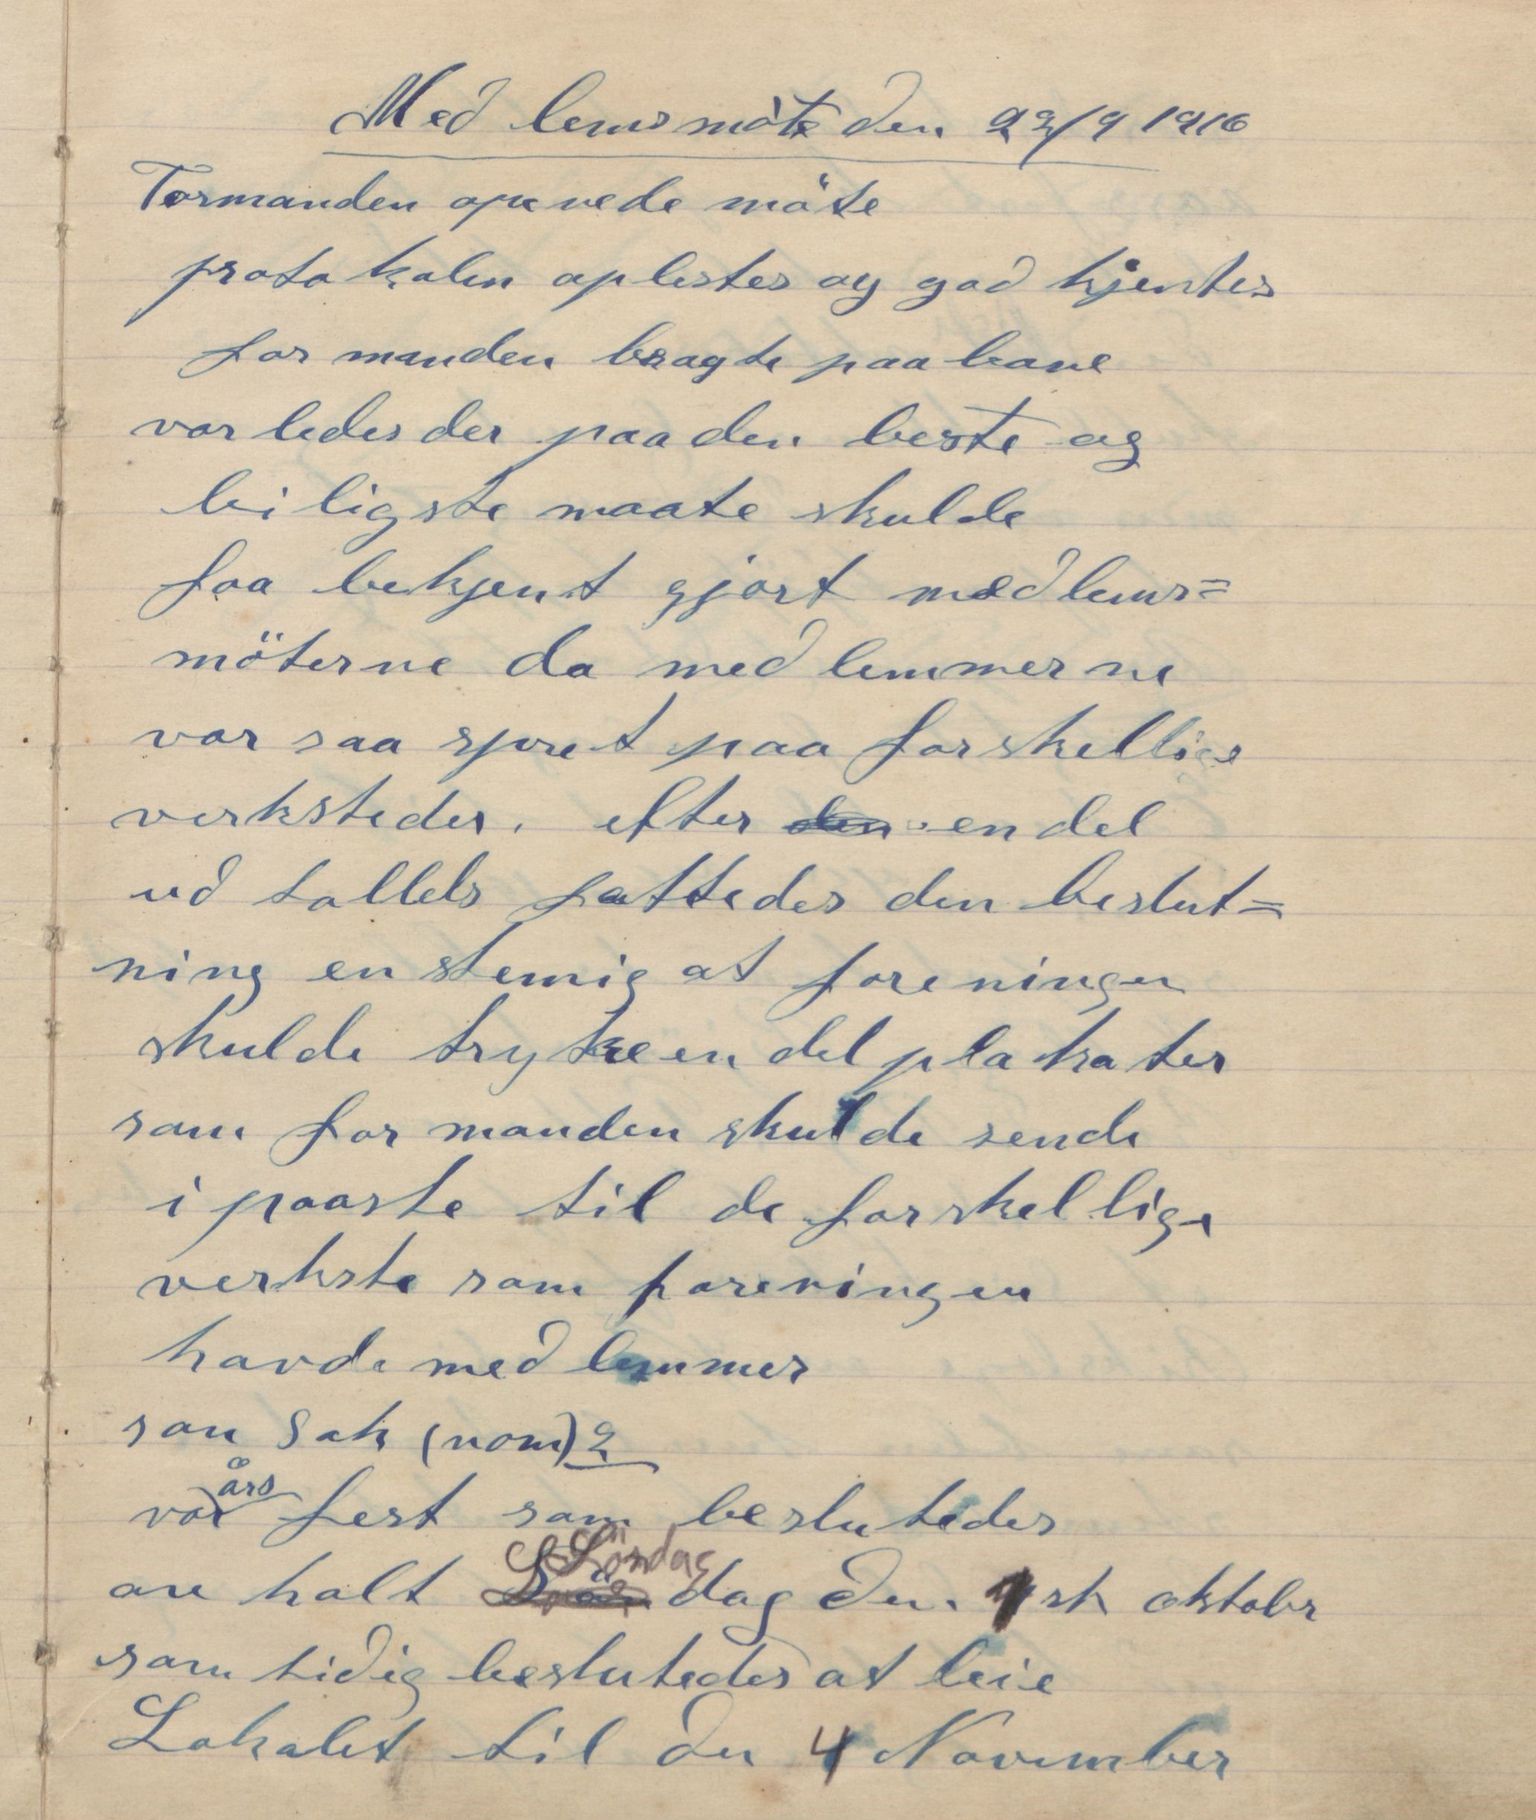 Medlemsmöte den 22/9 1916
Formanden opnevede möte
protokolen oplestes og godkjentes
formanden bragte paa bane
vorledes der paa den beste og
biligste maate skulde
faa bekjent gjort medlems=
möterne da medlemmerne
var saa spret paa forskellige
verksteder. efter den en del
udtallels fattedes den beslut=
ning enstemig at foreningen
skulde trykke en del plakater
som formanden skulde sende
i pooste til de forskellige
verkste som foreningen
havde medlemmer
som Sak (nom) 2
vor års fest som beslutedes
av halt Söndag dag den 1ste oktober
samtidig beslutedes at leie
Lokalet til den 4 November